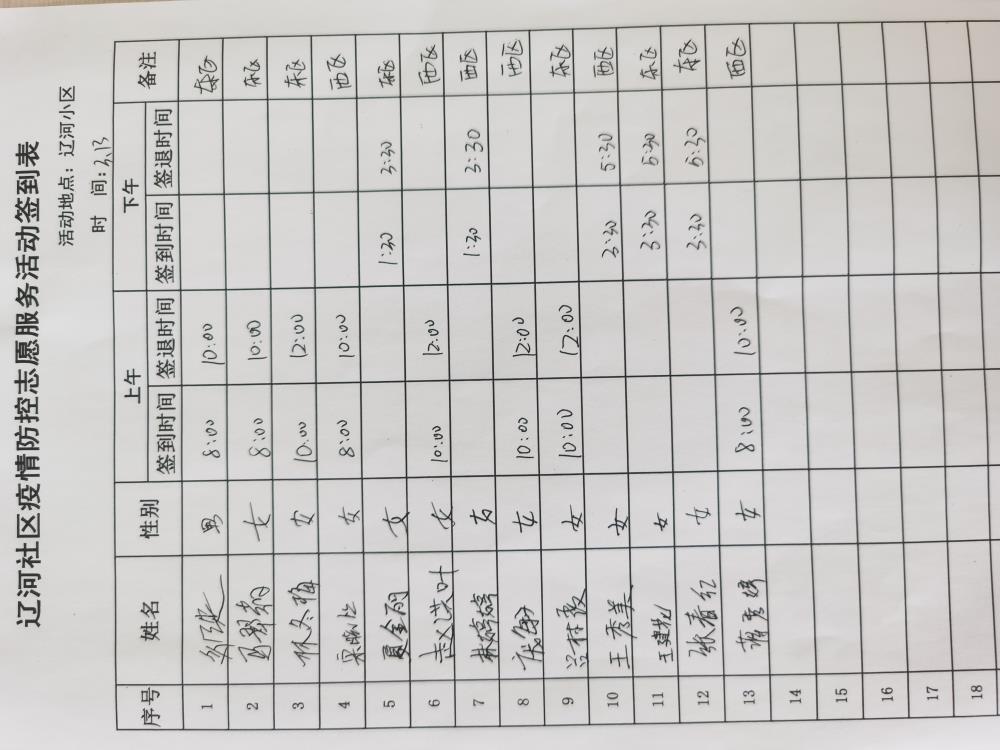 辽河社区疫情防控志愿服务活动签到表
活动地点：辽河小区
时 间：3.13
序号 姓名 性别 上午 下午 备注
签到时间 签退时间 签到时间 签退时间
1 男 8:00 10:00 东区
2 女 8:00 10:00 东区
3 林冬梅 女 10:00 12:00 东区
4 女 8:00 10:00 西区
5 夏金丽 女 1:30 3:30 东区
6 赵洪叶 女 10:00 12:00 西区
7 林婷婷 女 1:30 3:30 西区
8 女 10:00 12:00 西区
9 女 10:00 12:00 东区
10 王秀美 女 3:30 5:30 西区
11 女 3:30 5:30 东区
12 张春红 女 3:30 5:30 东区
13 女 8:00 10:00 西区
14
15
16
17
18